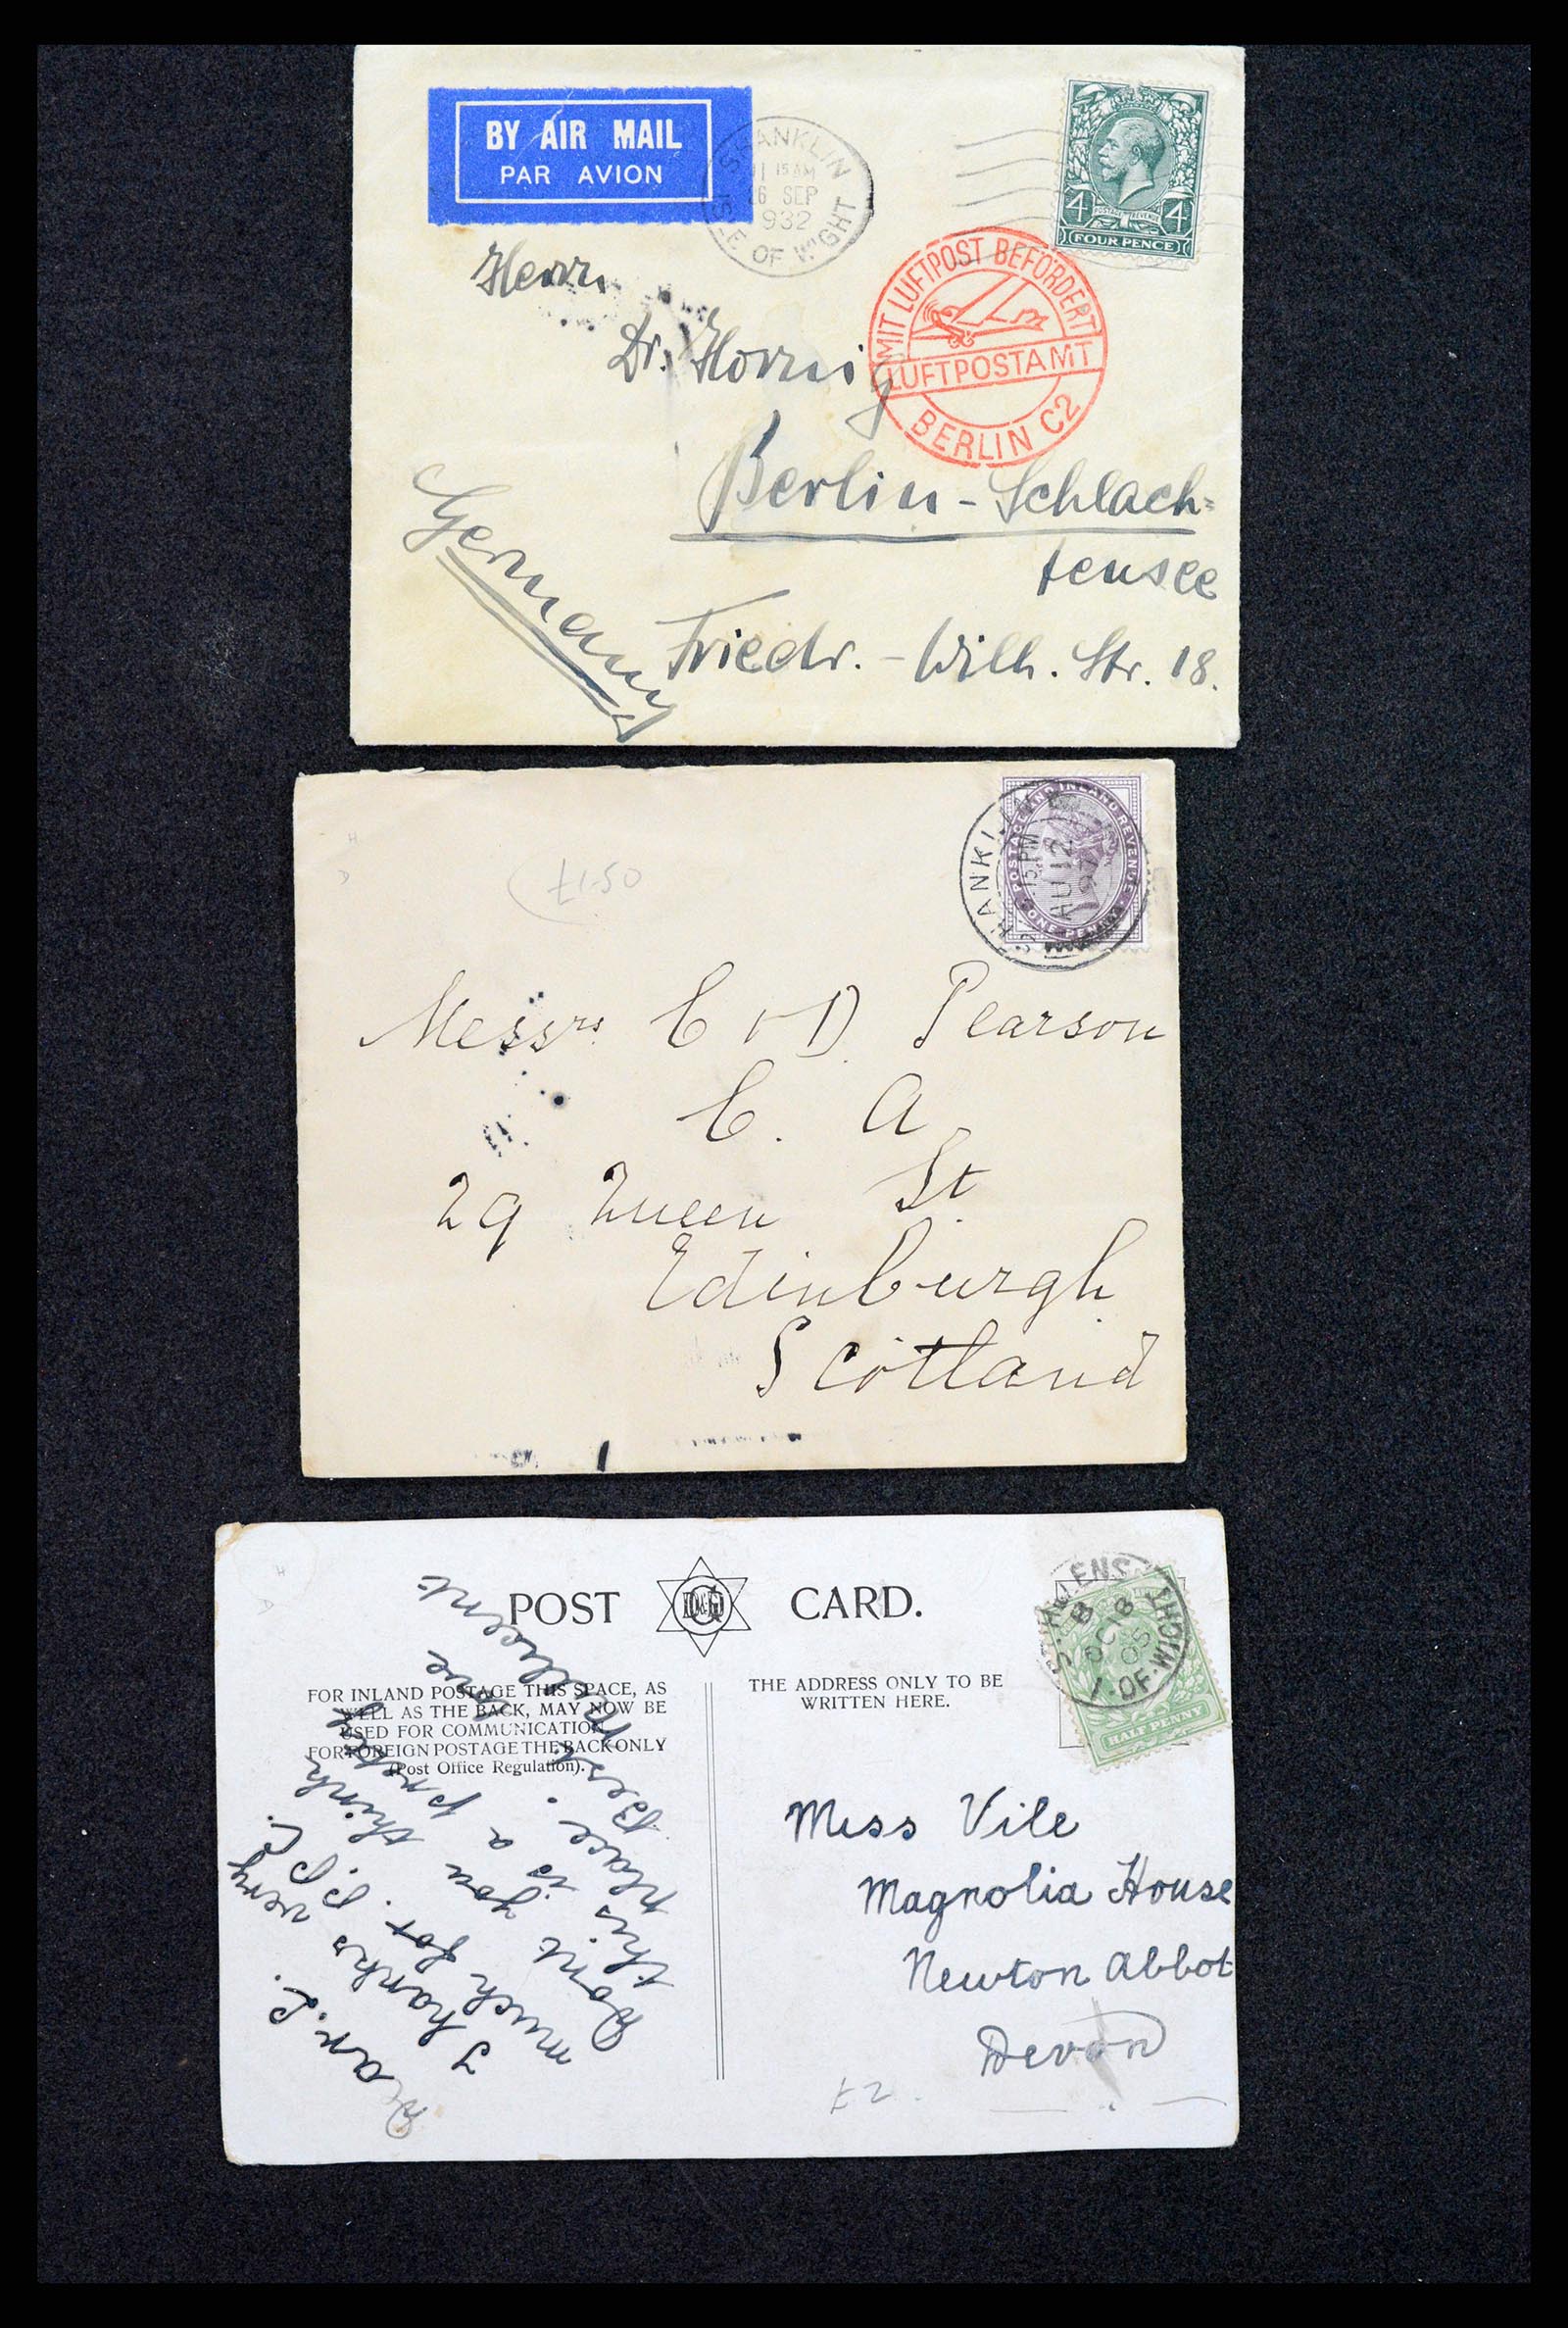 BY AIR MAIL
PAR AVION
SHANKLIN
11 15 AM
26 SEP
1932
ISLE OF WIGHT
4 POSTAGE REVENUE 4
FOUR PENCE
MIT LUFTPOST BEFÖRDERT
LUFTPOSTAMT
BERLIN C2
Herrn
Dr. Hornig
Berlin-Schlach=
tensee
Friedr.-Wilh. Str. 18.
Germany
£1.50
POSTAGE AND INLAND REVENUE
ONE PENNY
SHANKLIN
15 PM
AU 12
97
Messrs C & D Pearson
C. A
29 Queen St
Edinburgh
Scotland
POST CARD.
FOR INLAND POSTAGE THIS SPACE, AS
WELL AS THE BACK, MAY NOW BE
USED FOR COMMUNICATION
FOR FOREIGN POSTAGE THE BACK ONLY
(Post Office Regulation).
THE ADDRESS ONLY TO BE
WRITTEN HERE.
ST. HELENS
B
OC 18
05
I. OF. WIGHT
HALF PENNY
Dear L.
Thanks very
much for p.p.c.
Dont you think
this is a pretty
place. 
Best love
Millicent
Miss Vile
Magnolia House
Newton Abbot
Devon
£2.